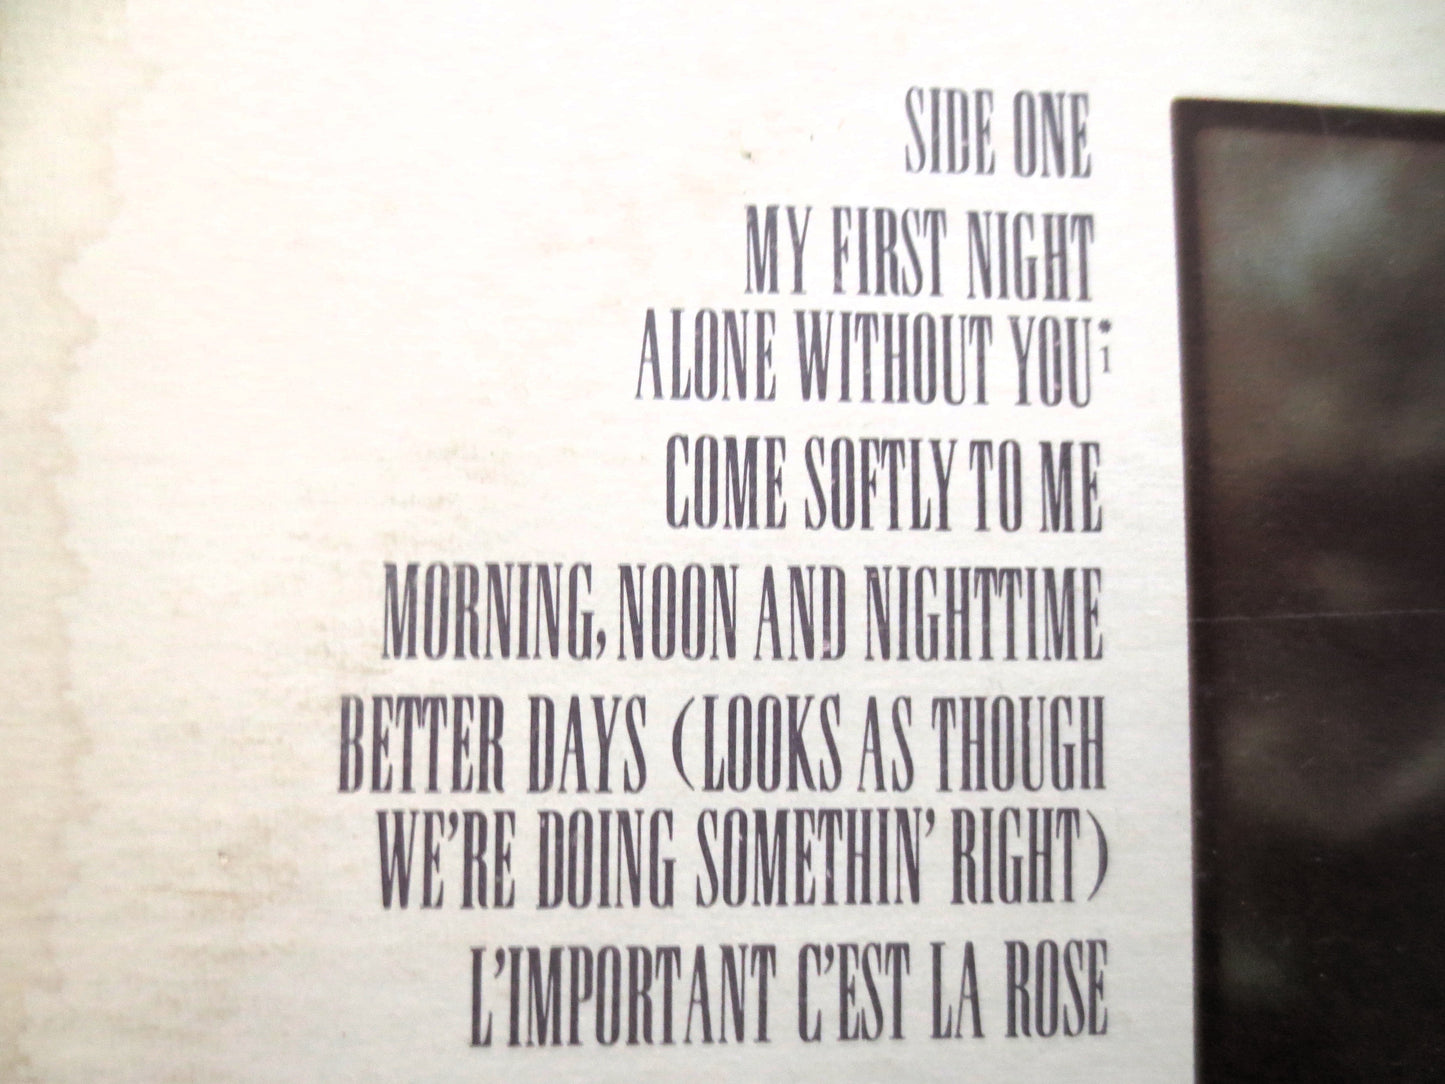 SIDE ONE
MY FIRST NIGHT
ALONE WITHOUT YOU*1
COME SOFTLY TO ME
MORNING, NOON AND NIGHTTIME
BETTER DAYS (LOOKS AS THOUGH
WE'RE DOING SOMETHIN' RIGHT)
L'IMPORTANT C'EST LA ROSE